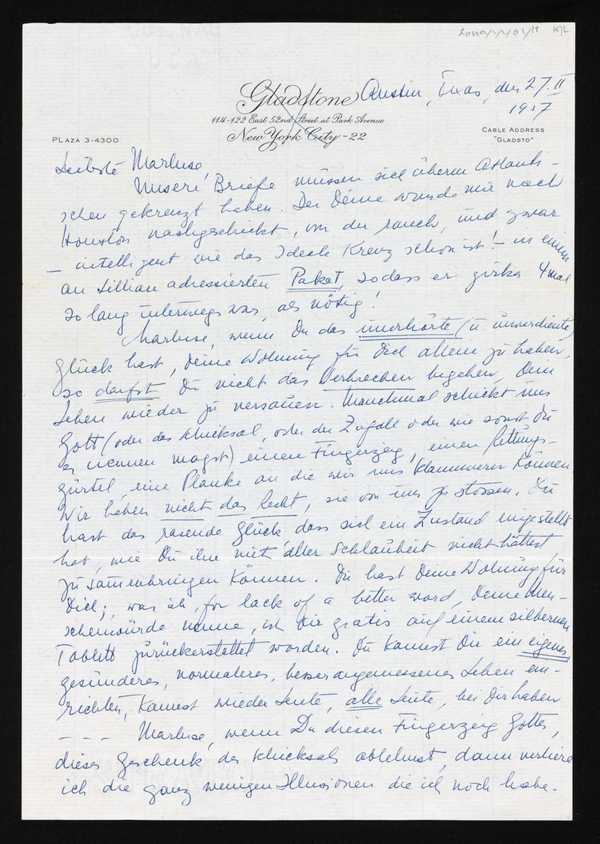 Gladstone
114-122 East 52nd Street at Park Avenue
New York City-22
PLAZA 3-4300
CABLE ADDRESS
"GLADSTO"
Austin, Texas, den 27. II
1957
Liebste Marluse,
Unsere Briefe müssen sich überm Atlanti-
schen gekreuzt haben. Der Deine wurde mir nach
Houston nachgeschickt, von der rauch, und zwar
– intelligent wie das Ideale Kreuz schon ist! – in einem
an Lillian adressierten Paket, sodass er zirka 4 mal
so lang unterwegs war, als nötig!
Marluse, wenn Du das unerhörte (u. unverdiente)
Glück hast, Deine Wohnung für Dich allein zu haben,
so darfst Du nicht das Verbrechen begehen, Dein
Leben wieder zu versauen. Manchmal schickt uns
Gott (oder das Schicksal, oder der Zufall oder wie sonst Du
es nennen magst) einen Fingerzeig, einen Rettungs-
gürtel, eine Planke an die wir uns klammern können
Wir haben nicht das Recht, sie von uns zu stossen. Du
hast das rasende Glück dass sich ein Zustand eingestellt
hat, wie Du ihn mit aller Schlauheit nicht hättest
zusammenbringen können. Du hast Deine Wohnung für
Dich; was ich, for lack of a better word, Deine Men-
schenwürde nenne, ist Dir gratis auf einem silbernen
Tablett zurückerstattet worden. Du kannst Dir ein eigenes
gesünderes, normaleres, besser angemessenes Leben ein-
richten, kannst wieder Leute, alle Leute, bei Dir haben
– – – Marluse, wenn Du diesen Fingerzeig Gottes,
dieses Geschenk des Schicksals ablehnst, dann verliere
ich die ganz wenigen Illusionen die ich noch habe.